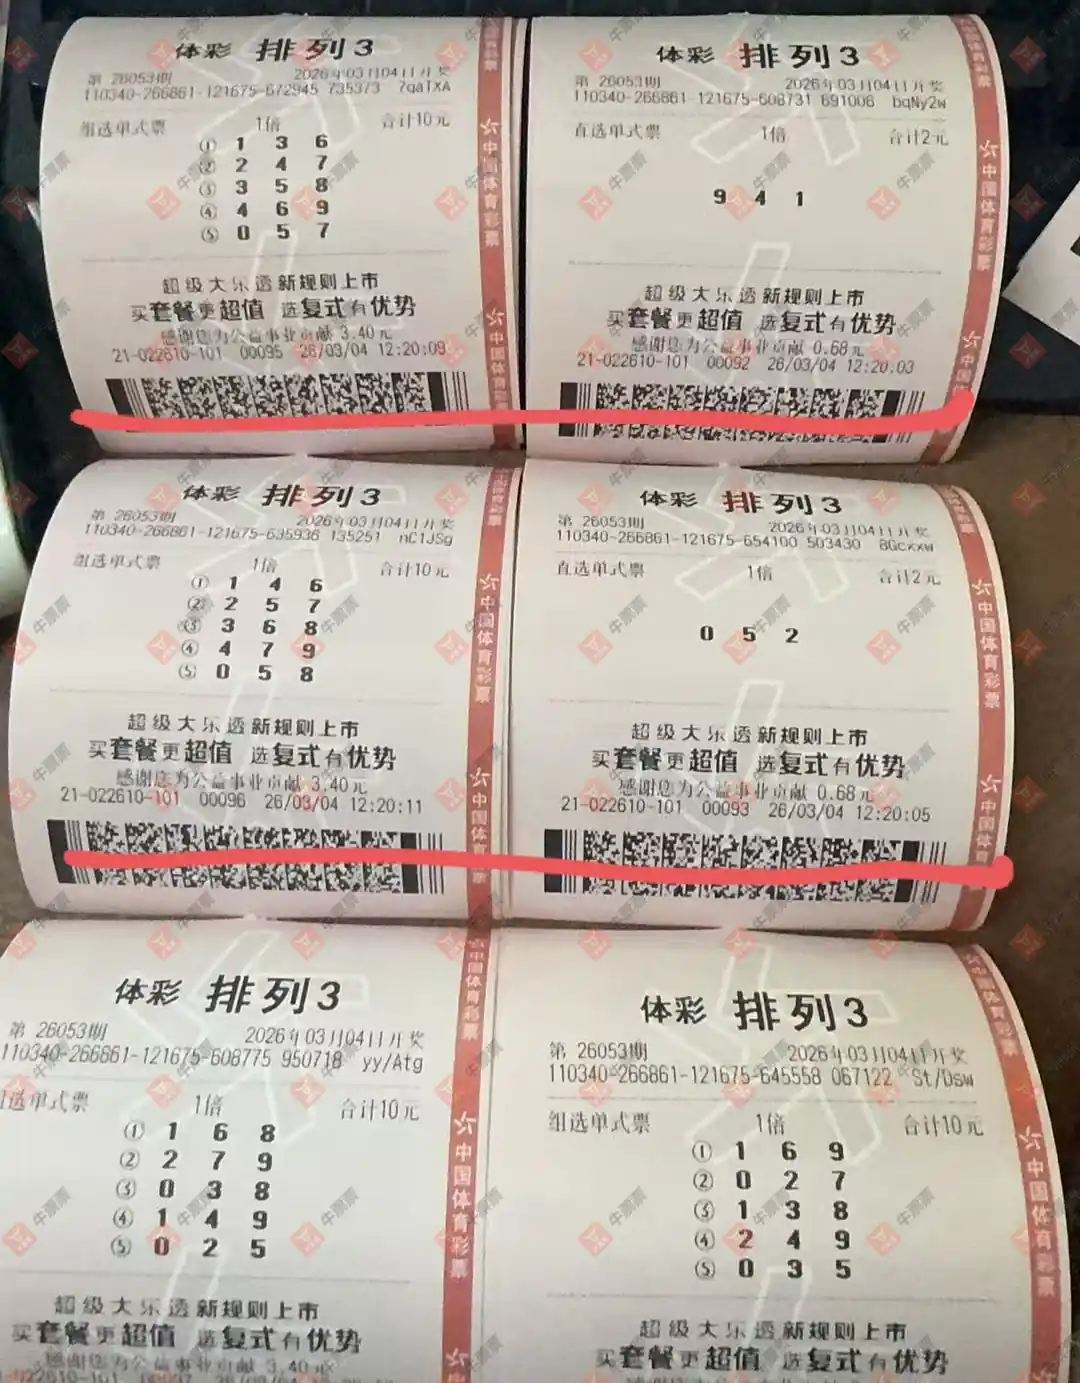 体彩 排列3
第 26053期 2026年03月04日开奖
110340-266861-121675-672945 735373 7qaTXA
组选单式票 1倍 合计10元
① 1 3 6
② 2 4 7
③ 3 5 8
④ 4 6 9
⑤ 0 5 7
超级大乐透新规则上市
买套餐更超值 选复式有优势
感谢您为公益事业贡献 3.40元
21-022610-101 00095 26/03/04 12:20:09
中国体育彩票
体彩 排列3
第 26053期 2026年03月04日开奖
110340-266861-121675-608731 691006 bqNy2w
直选单式票 1倍 合计2元
9 4 1
超级大乐透新规则上市
买套餐更超值 选复式有优势
感谢您为公益事业贡献 0.68元
21-022610-101 00092 26/03/04 12:20:03
中国体育彩票
体彩 排列3
第 26053期 2026年03月04日开奖
110340-266861-121675-635936 135251 nC1JSg
组选单式票 1倍 合计10元
① 1 4 6
② 2 5 7
③ 3 6 8
④ 4 7 9
⑤ 0 5 8
超级大乐透新规则上市
买套餐更超值 选复式有优势
感谢您为公益事业贡献 3.40元
21-022610-101 00096 26/03/04 12:20:11
中国体育彩票
体彩 排列3
第 26053期 2026年03月04日开奖
110340-266861-121675-654100 503430 8Gcxxw
直选单式票 1倍 合计2元
0 5 2
超级大乐透新规则上市
买套餐更超值 选复式有优势
感谢您为公益事业贡献 0.68元
21-022610-101 00093 26/03/04 12:20:05
中国体育彩票
体彩 排列3
第 26053期 2026年03月04日开奖
110340-266861-121675-608775 950718 yy/Atg
选单式票 1倍 合计10元
① 1 6 8
② 2 7 9
③ 0 3 8
④ 1 4 9
⑤ 0 2 5
超级大乐透新规则上市
买套餐更超值 选复式有优势
感谢您为公益事业贡献 3.40元
中国体育彩票
体彩 排列3
第 26053期 2026年03月04日开奖
110340-266861-121675-645558 067122 St/Dsw
组选单式票 1倍 合计10元
① 1 6 9
② 0 2 7
③ 1 3 8
④ 2 4 9
⑤ 0 3 5
超级大乐透新规则上市
买套餐更超值 选复式有优势
中国体育彩票
牛票票